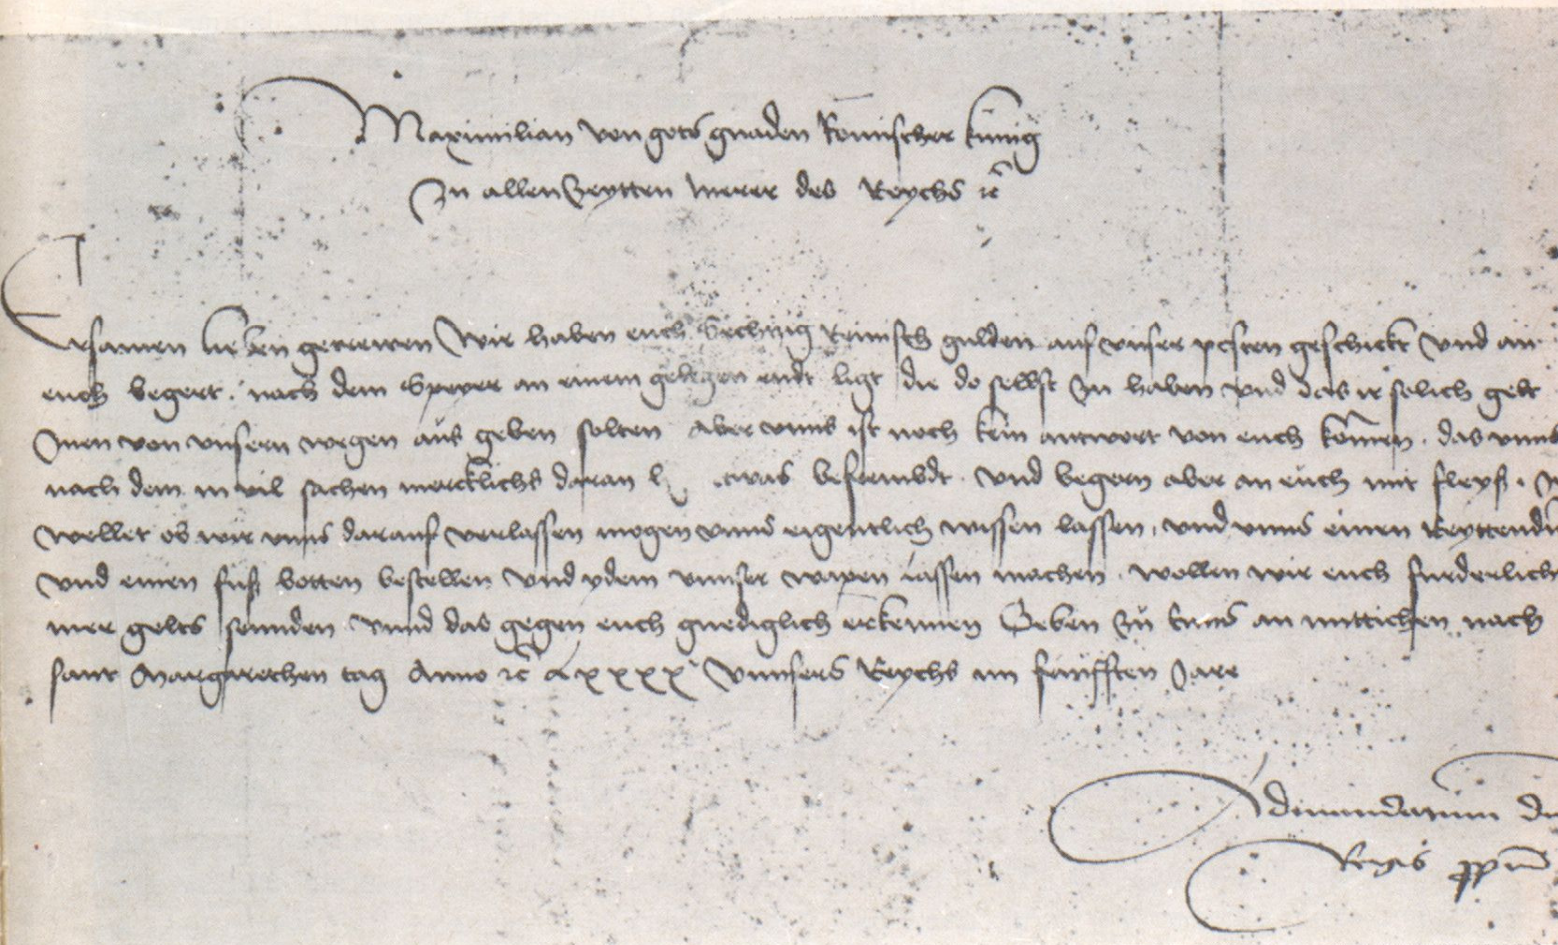 Maximilian von gots gnaden Romischer kunig
Zu allen Zeytten merer des Reychs ꝛc
Ersamen lieben getrewen Wir haben euch Sechtzig Reinisch gulden auf unser posten geschickt Und an
euch begert. nach dem Speyer an einem gelegen endt ligt die do selbst zu haben und das ir solich gelt
Inen von unsern wegen aus geben solten Aber unns ist noch kein antwort von euch komen. das unns
nach dem in vil sachen mercklichs daran befrembdt. Und begern aber an euch mit fleyss.
wellet ob wir unns darauf verlassen mogen unns eigentlich wissen lassen, und unns einen Reyttenden
und einen fuss botten bestellen Und ydem unnser wapen lassen machen. wollen wir euch furderlich
mer gelts sennden Unnd das gegen euch gnediglich erkennen Geben zu an mittichen nach
sant Margarethen tag Anno ꝛc LXXXX Unnsers Reychs im funfften Jare
Admandatum
Regis